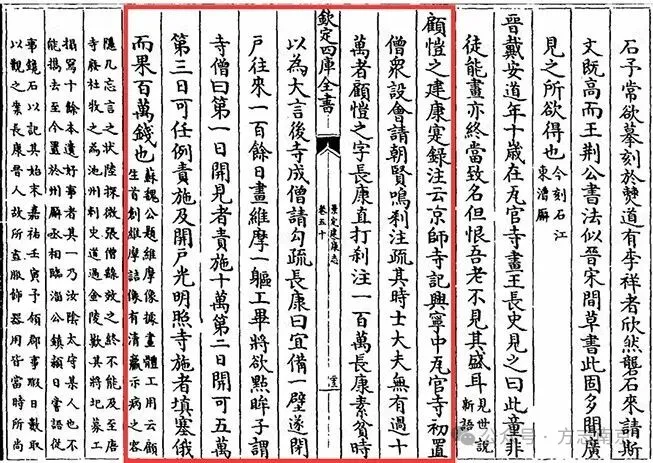 石子常欲摹刻於僰道有李祥者欣然礱石來請斯
文既高而王荆公書法似晉宋間草書此固多聞廣
見之所欲得也今刻石江
東漕廨
晉戴安道年十歲在瓦官寺畫王長史見之曰此童非
徒能畫亦終當致名但恨吾老不見其盛耳見世說
新語
顧愷之建康寔錄注云京師寺記興寧中瓦官寺初置
僧衆設會請朝賢鳴刹注疏其時士大夫無有過十
萬者顧愷之字長康直打刹注一百萬長康素貧時
欽定四庫全書
景定建康志
卷五十
以為大言後寺成僧請勾疏長康曰宜備一壁遂閉
戶往來一百餘日畫維摩一軀工畢將欲點眸子謂
寺僧曰第一日開見者責施十萬第二日開可五萬
第三日可任例責施及開戶光明照寺施者填塞俄
而果百萬錢也蘇魏公題維摩像據畫體工用云顧
生首創維摩詰像有清羸示病之容
隱几忘言之狀陸探微張僧繇效之終不能及至唐
寺廢杜牧之為池州刺史道過金陵歎其將圮募工
搨寫十餘本遺好事者其一乃汝陰太守某人也不
能携去至今置於州廨丞相臨淄公鎮潁日嘗語從
事鐫石以記其始末嘉祐壬寅予領郡事暇日數取
以觀之業長康晉人故所畫服飾器用皆當時所尚
公众号·方志南京